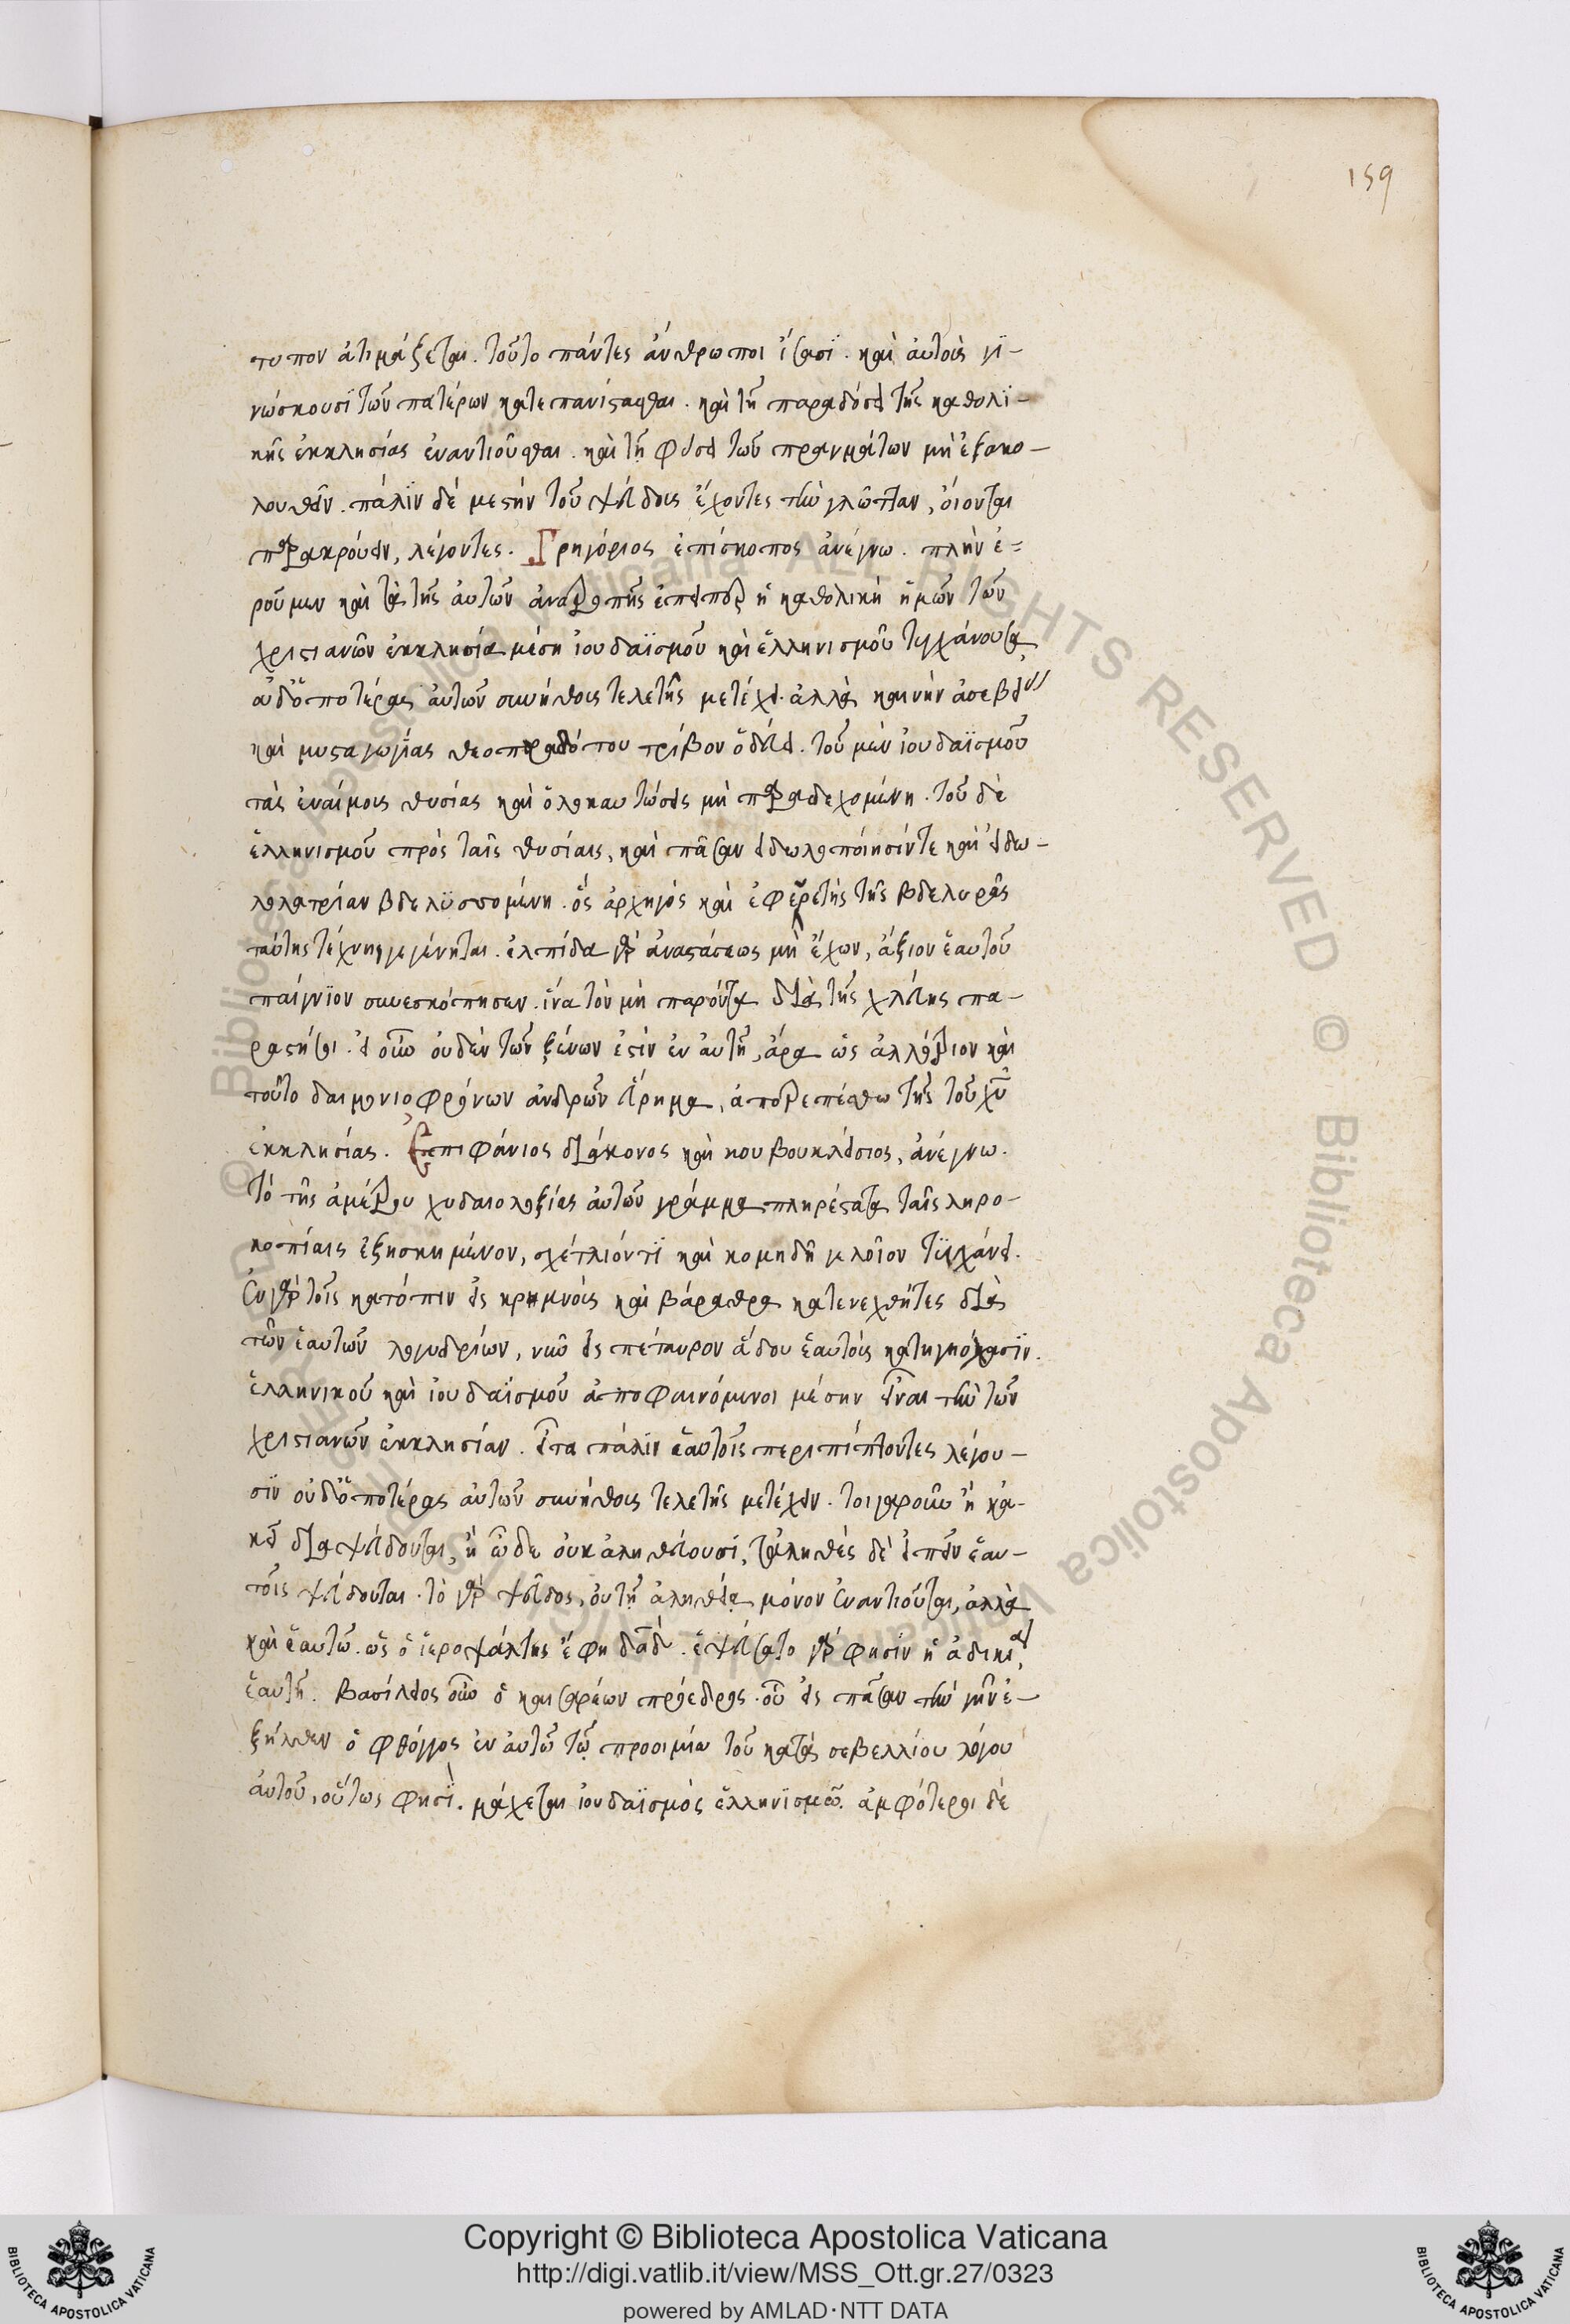 159
τυπον ἀτιμάζεται. τοῦτο πάντες ἄνθρωποι ἴσασϊ. καὶ αὐτοὶ γϊ-
νώσκουσϊ τῶν πατέρων κατεπανίστασθαι. καὶ τῇ παραδόσει τῆς καθολϊ-
κῆς ἐκκλησίας ἐναντιοῦσθαι. καὶ τῇ φύσει τῶν πραγμάτων μὴ ἐξακο-
λουθεῖν. πάλϊν δέ μεστὴν τοῦ ψεύδους ἔχοντες τὴν γλῶτταν, οἴονται
παρακρούειν, λέγοντες. Γρηγόριος ἐπίσκοπος ἀνέγνω. πλὴν ἐ-
ροῦμεν καὶ τὰ τῆς αὐτῶν ἀνατροπῆς ἐπειπερ ἡ καθολικὴ ἡμῶν τῶν
χριστιανῶν ἐκκλησία μέση ἰουδαϊσμοῦ καὶ ἑλληνισμοῦ τυγχάνουσα,
οὐδ' ὁποτέρας αὐτῶν συνήθους τελετῆς μετέχει. ἀλλὰ καινὴν εὐσεβείας
καὶ μυσταγωγίας θεοπαραδότου τρίβον ὁδεύει. τοῦ μὲν ἰουδαϊσμοῦ
τὰς ἐναίμους θυσίας καὶ ὁλοκαυτώσεις μὴ παραδεχομένη. τοῦ δὲ
ἑλληνισμοῦ πρὸς ταῖς θυσίαις, καὶ πᾶσαν εἰδωλοποίησίν τε καὶ εἰδω-
λολατρίαν βδελϋσσομένη. ὃς ἀρχηγὸς καὶ ἐφευρετὴς τῆς βδελυρᾶς
ταύτης τέχνης γεγένηται. ἐλπίδα γὰρ ἀναστάσεως μὴ ἔχων, ἄξιον ἑαυτοῦ
παίγνϊον συνεσκόπησεν. ἵνα τὸν μὴ παρόντα διὰ τῆς χλεύης πα-
ραστήσῃ. εἰ οὖν οὐδὲν τῶν ξένων ἐστὶν ἐν αὐτῇ, ἄρα ὡς ἀλλότριον καὶ
τοῦτο δαιμονιοφρόνων ἀνδρῶν εὕρημα, ἀποτρεπέσθω τῆς τοῦ χυ
ἐκκλησίας. Ἐπιφάνιος διάκονος καὶ κουβουκλείσιος, ἀνέγνω.
τὸ τῆς ἀμέτρου χυδαιολεξίας αὐτῶν γράμμα πληρέστατα ταῖς ληρο-
κοπίαις ἐξησκημένον, σχέτλιόν τϊ καὶ κομηδῆ γελοῖον τυγχάνει.
ἐν γὰρ τοῖς κατόπιν εἰς κρημνοὺς καὶ βάραθρα κατενεχθέντες διὰ
τῶν ἑαυτῶν λογυδρίων, νῦν εἰς πέταυρον ἅδου ἑαυτοὺς κατηγηόχασϊν.
ἑλληνικοῦ καὶ ἰουδαϊσμοῦ ἀποφαινόμενοι μέσην εἶναι τὴν τῶν
χριστιανῶν ἐκκλησίαν. εἶτα πάλϊν ἑαυτοῖς περιπίπτοντες λέγου-
σϊν οὐδ' ὁποτέρας αὐτῶν συνήθους τελετῆς μετέχειν. τοιγαροῦν ἢ κἀ-
κεῖ διαψεύδονται, ἢ ὧδε οὐκ ἀληθεύουσϊ, τἀληθὲς δὲ εἰπεῖν ἑαυ-
τοῖς ψεύδονται. τὸ γὰρ ψεῦδος, οὐ τῇ ἀληθείᾳ μόνον ἐναντιοῦται, ἀλλὰ
καὶ ἑαυτῷ. ὡς ὁ ἱεροψάλτης ἔφη δαδ. ἐψεύσατο γάρ φησιν ἡ ἀδικία,
ἑαυτῇ. βασίλειος οὖν ὁ καισαρέων πρόεδρος. οὗ εἰς πᾶσαν τὴν γῆν ἐ-
ξῆλθεν ὁ φθόγγος ἐν αὐτῷ τῷ προοιμίῳ τοῦ κατὰ σεβελλίου λόγου
αὐτοῦ, οὕτως φησϊ. μάχεται ἰουδαϊσμὸς ἑλληνϊσμῷ. ἀμφότεροι δὲ
© Biblioteca Apostolica Vaticana ALL RIGHTS RESERVED
Copyright © Biblioteca Apostolica Vaticana
http://digi.vatlib.it/view/MSS_Ott.gr.27/0323
powered by AMLAD·NTT DATA
BIBLIOTECA APOSTOLICA VATICANA
BIBLIOTECA APOSTOLICA VATICANA